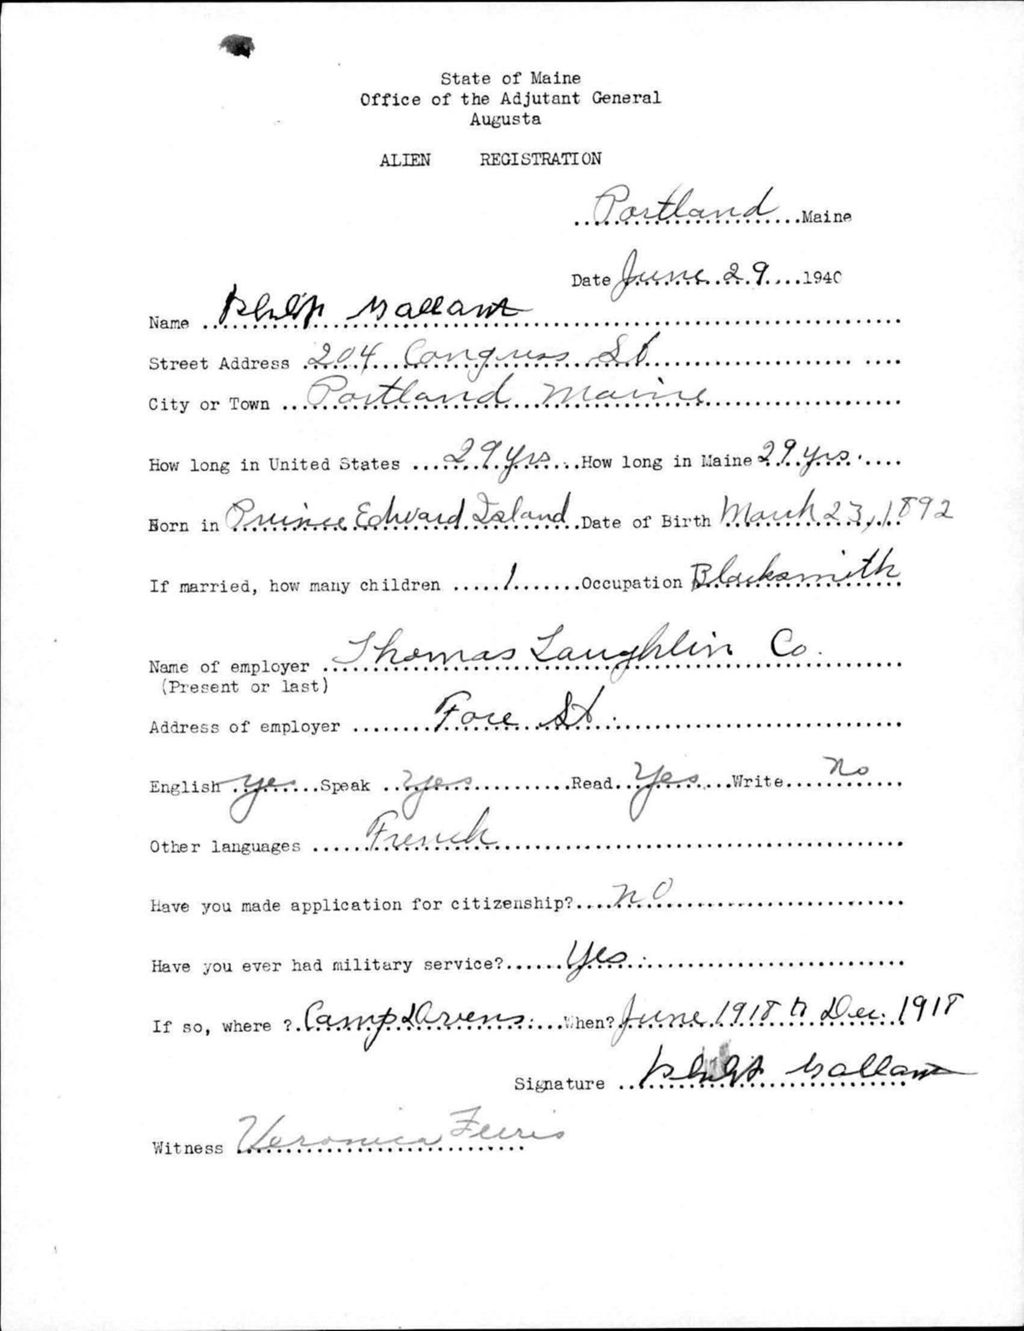 State of Maine
Office of the Adjutant General
Augusta
ALIEN REGISTRATION
Portland Maine
Date June 29 1940
Name Philip Gallant
Street Address 204 Congress St
City or Town Portland Maine
How long in United States 29 yrs How long in Maine 29 yrs.
Born in Prince Edward Island Date of Birth March 23, 1892
If married, how many children 1 Occupation Blacksmith
Name of employer Thomas Laughlin Co.
(Present or last)
Address of employer Fore St.
English yes Speak yes Read Yes Write no
Other languages French
Have you made application for citizenship? NO
Have you ever had military service? Yes
If so, where ? Camp When? June 1918 to Dec. 1918
Signature Philip Gallant
Witness Veronica